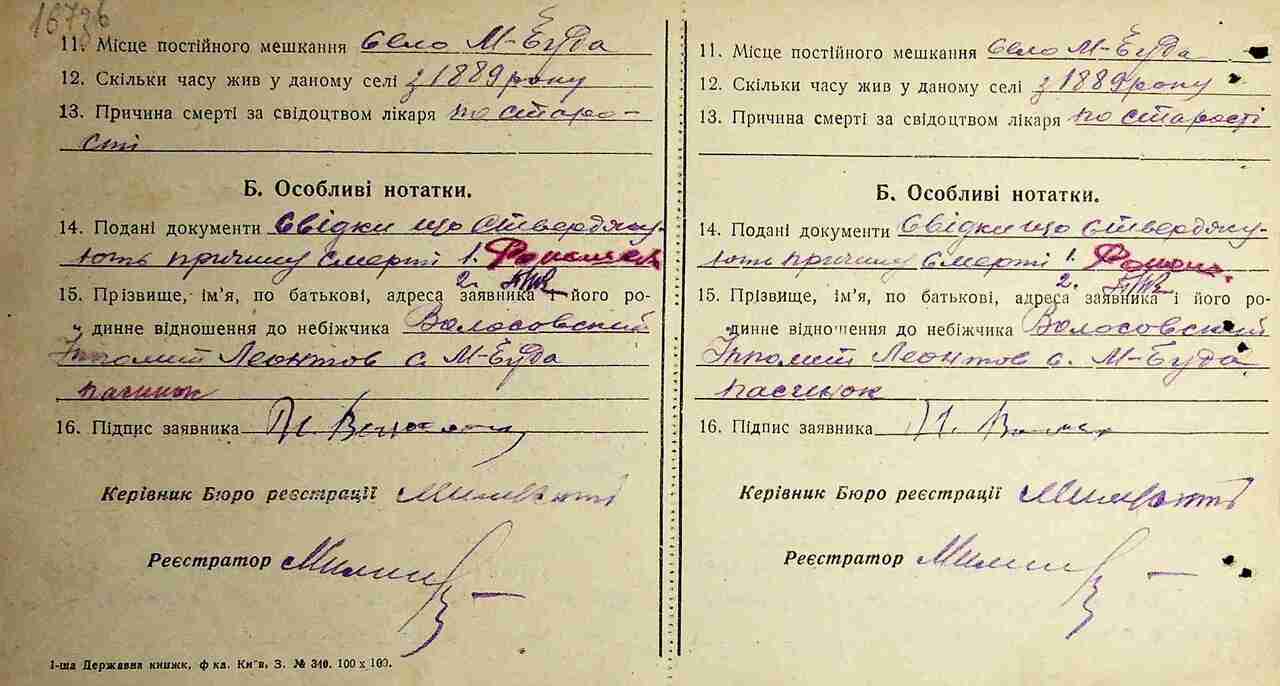 1673б
11. Місце постійного мешкання село М-Буда
12. Скільки часу жив у даному селі з 1889 року
13. Причина смерті за свідоцтвом лікаря по старо-
сті
Б. Особливі нотатки.
14. Подані документи Свідки що стверджу-
ють причину смерті 1.
2.
15. Прізвище, ім'я, по батькові, адреса заявника і його ро-
динне відношення до небіжчика Волосовский
Іпполит Леонтов с. М-Буда
пасинок
16. Підпис заявника
Керівник Бюро реєстрації
Реєстратор
1-ша Державна книжк. ф-ка. Київ, З. № 340. 100 х 100.
11. Місце постійного мешкання село М-Буда
12. Скільки часу жив у даному селі з 1889 року
13. Причина смерті за свідоцтвом лікаря по старості
Б. Особливі нотатки.
14. Подані документи Свідки що стверджу-
ють причину смерті 1.
2.
15. Прізвище, ім'я, по батькові, адреса заявника і його ро-
динне відношення до небіжчика Волосовский
Іпполит Леонтов с. М-Буда
пасинок
16. Підпис заявника
Керівник Бюро реєстрації
Реєстратор